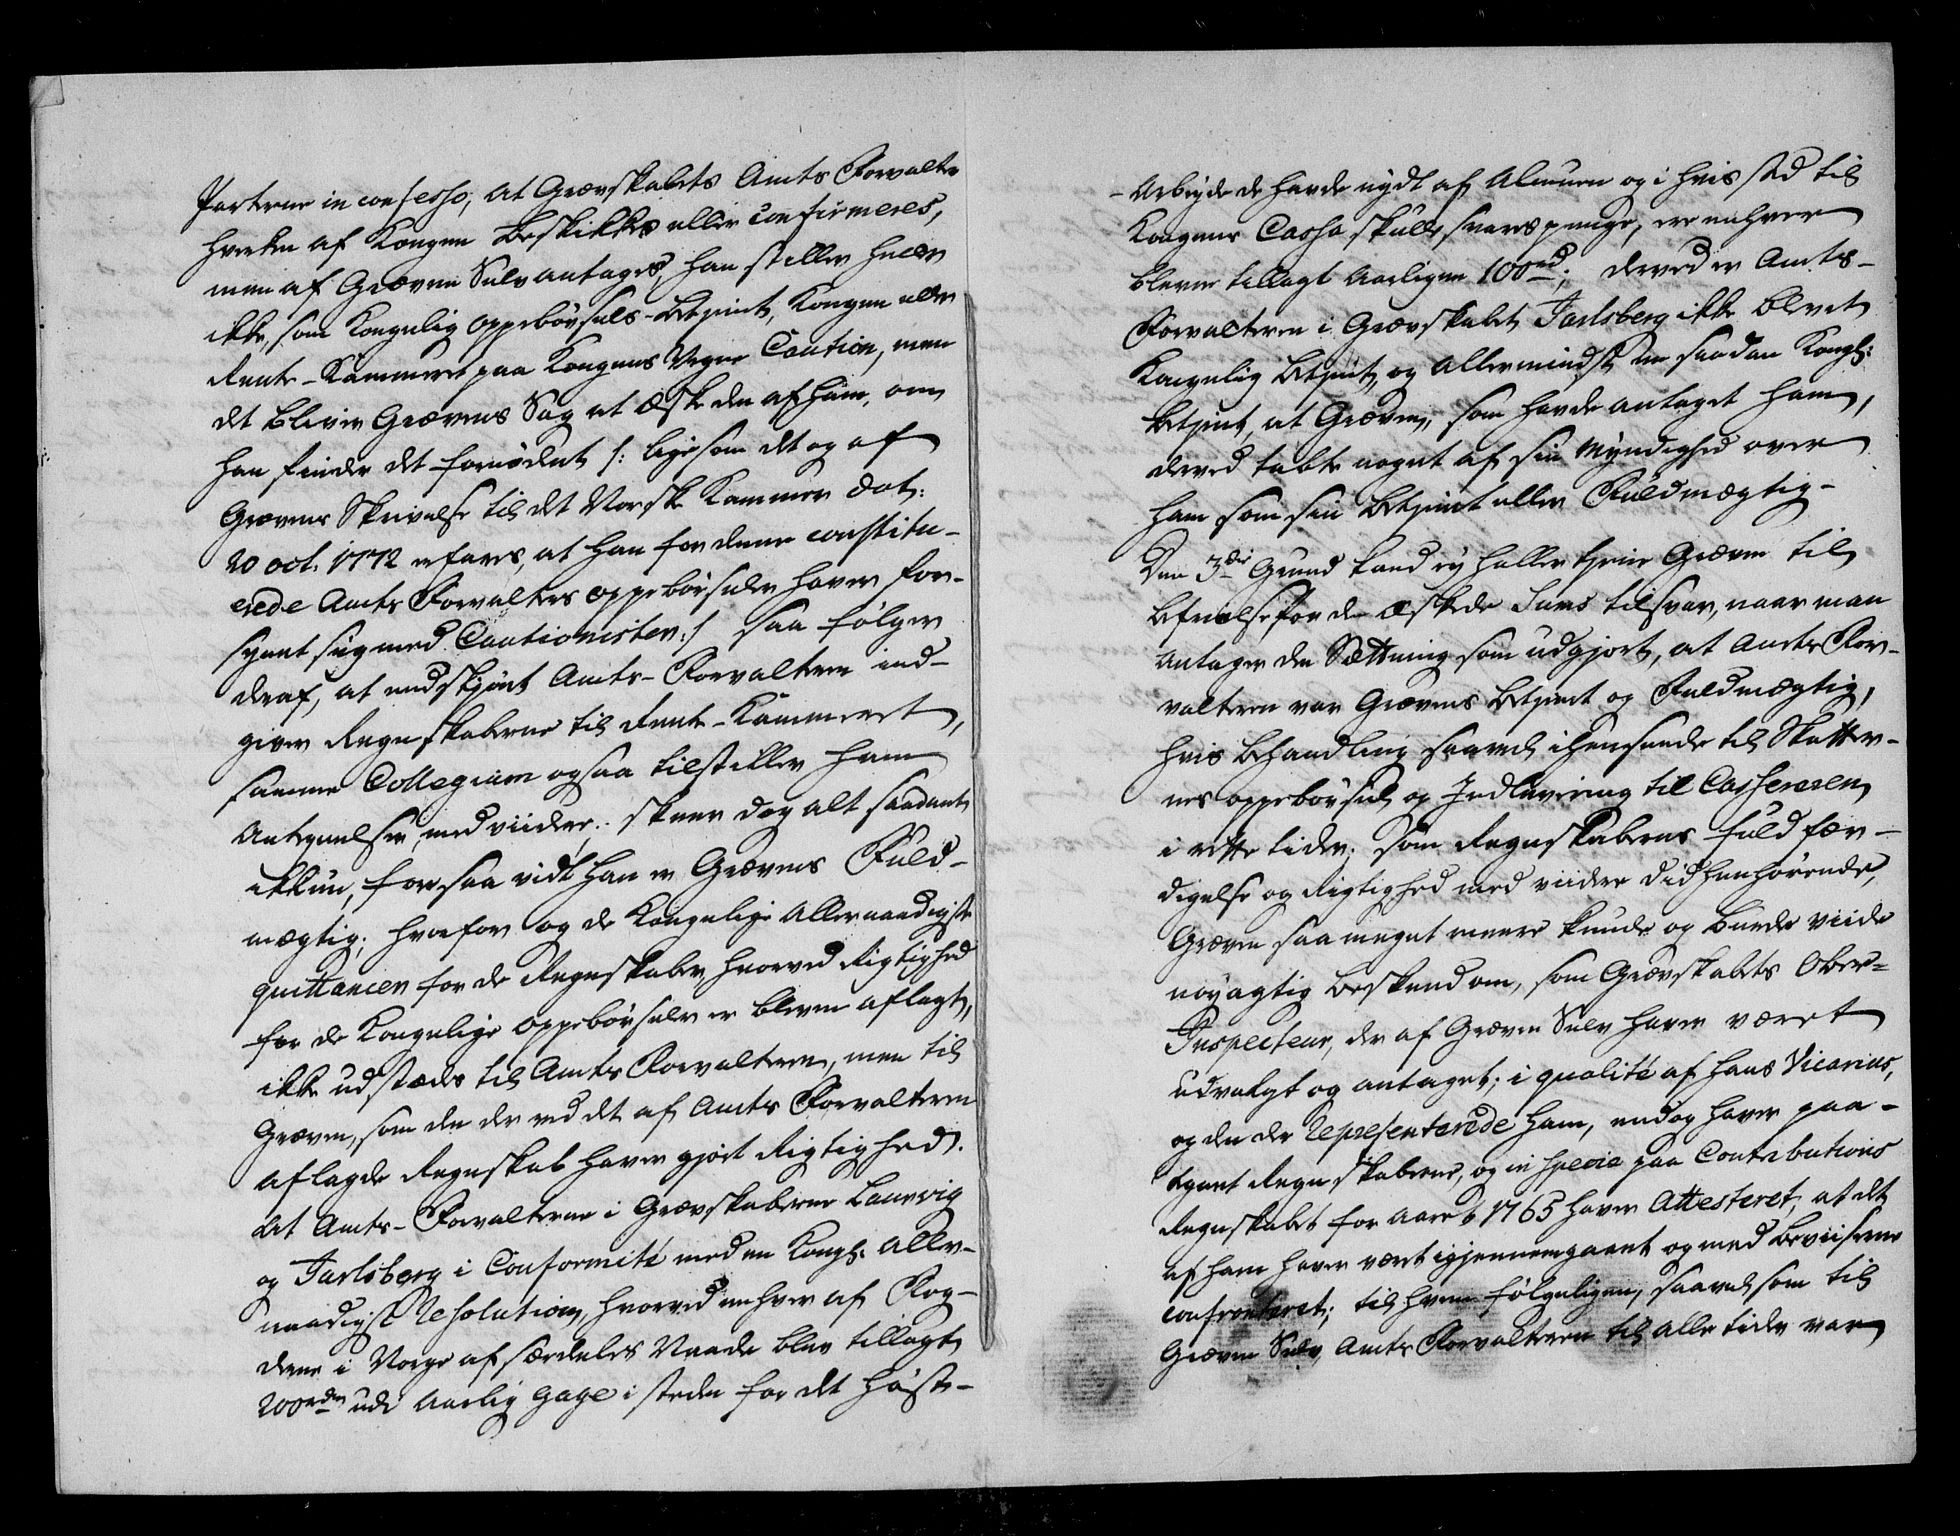 Parterne in confesso, at Grævskabets Amts Forvalter
hverken af Kongen beskikkes eller confirmeres,
men af Græven Selv antages, han stiller heller
ikke, som Kongelig oppebørsels-betjent, Kongen eller
Rente-Kammeret paa Kongens Vegne Caution, men
det bliver Grævens Sag at æske den af ham, om
han finder det fornødent /: ligesom det og af
Grævens Skrivelse til det Norske Kammer dat:
20 oct. 1772 erfares, at han for denne constitu-
erede Amts Forvalters oppebørseler haver for-
synt sig med Cautionister :/ saa følger
deraf, at endskjønt Amts-Forvalteren ind-
giver Regnskaberne til Rente-Kammeret,
samme Collegium ogsaa tilstiller ham
Antegnelser, med viidere; skeer dog alt saadant
ikkun, for saa vidt han er Grævens Fuld-
mægtig; hvorfor og de Kongelige Allernaadigste
quittancer for de Regnskaber, hvorved Rigtighed
for de Kongelige oppebørseler er bleven aflagt,
ikke udstædes til Amts Forvalteren, men til
Græven, som den der ved det af Amts Forvalteren
aflagde Regnskab haver gjort Rigtighed.
At Amts-Forvalterne i Grævskaberne Laurvig
og Jarlsberg i Conformité med en Kongl: aller-
naadigst Resolution, hvorved enhver af Fog-
derne i Norge af særdeles Naade blev tillagt
200 rdr udi Aarlig gage i steden for det høste-
-Arbejde de havde nydt af Almuen og i hvis sted til
Kongens Cassa skulle svares penge, ere enhver
bleven tillagt Aarligen 100 rd; derved er Amts-
Forvalteren i Grævskabet Jarlsberg ikke blevet
Kongelig betjent, og Allermindst en saadan Kongl:
betjent, at Græven, som havde antaget ham,
derved tabte noget af sin Myndighed over
ham som sin betjent eller Fuldmægtig-
Den 3die Grund kand ej heller tjene Græven til
befrielse for de æskede Sums tilsvar, naar man
antager den Sættning som udgjort, at Amts For-
valteren var Grævens betjent og Fuldmægtig,
hvis behandling saavel i henseende til Skatter-
nes oppebørsel og Indlevering til Casserereren
i rette tider, som Regnskabernes fuldfær-
digelse og Rigtighed med viidere didhenhørende,
Græven saa meget meere kunde og burde viide
nøyagtig beskeed om, som Grævskabets Ober-
Inspecteur, der af Græven Selv haver været
udvalgt og antaget; i qualité af hans Vicarius,
og den der Representerede ham, endog haver paa-
tegnet Regnskaberne, og in specie paa Contributions
Regnskabet for Aaret 1765 haver Attesteret, at det
af ham haver vært igjennemgaaet og med beviiserne
confronteret; til hvem følgeligen, saavel som til
Græven Selv, Amts Forvalteren til alle tider var